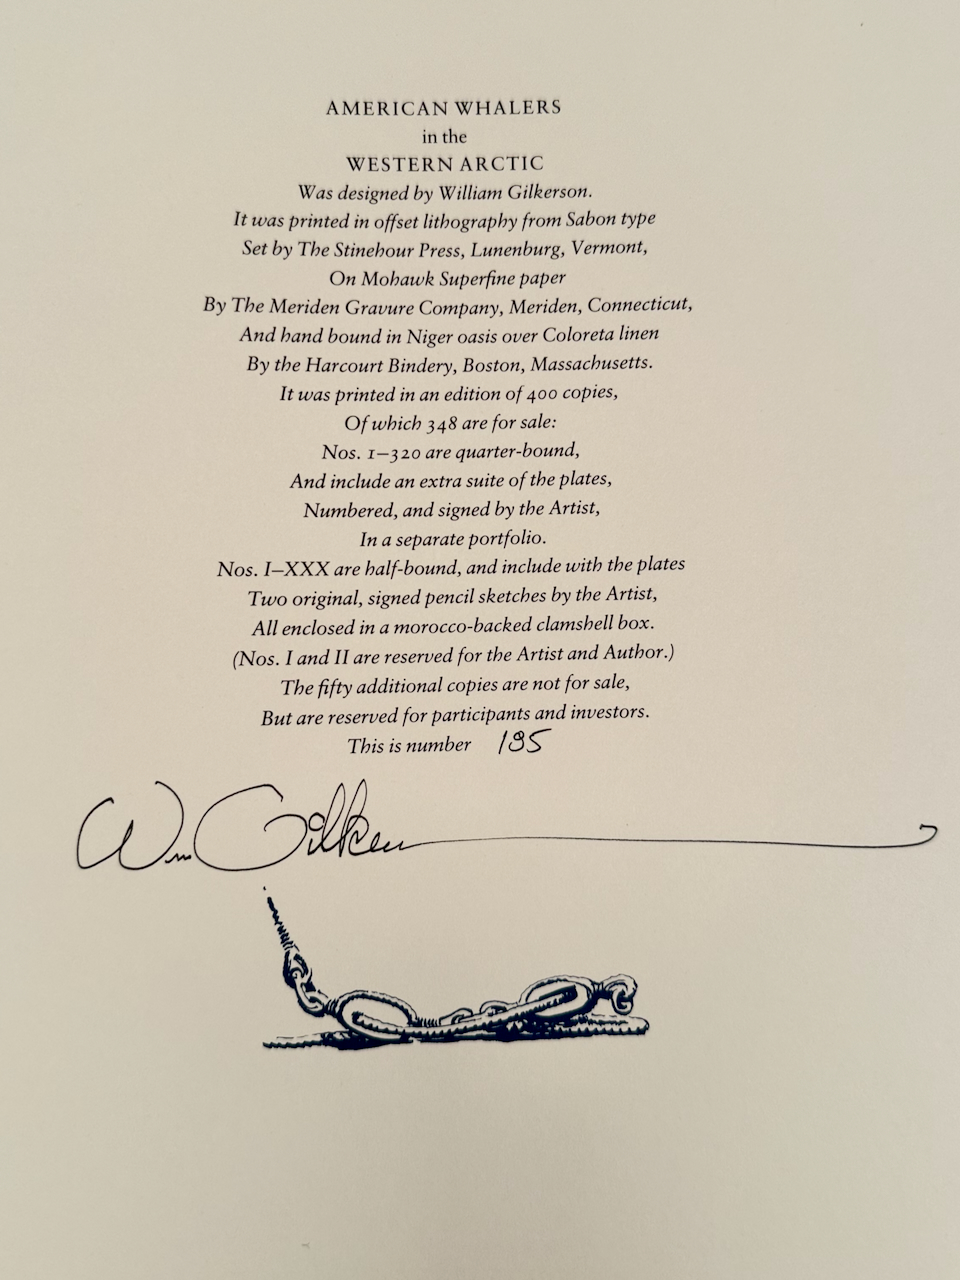 AMERICAN WHALERS
in the
WESTERN ARCTIC
Was designed by William Gilkerson.
It was printed in offset lithography from Sabon type
Set by The Stinehour Press, Lunenburg, Vermont,
On Mohawk Superfine paper
By The Meriden Gravure Company, Meriden, Connecticut,
And hand bound in Niger oasis over Coloreta linen
By the Harcourt Bindery, Boston, Massachusetts.
It was printed in an edition of 400 copies,
Of which 348 are for sale:
Nos. 1–320 are quarter-bound,
And include an extra suite of the plates,
Numbered, and signed by the Artist,
In a separate portfolio.
Nos. I–XXX are half-bound, and include with the plates
Two original, signed pencil sketches by the Artist,
All enclosed in a morocco-backed clamshell box.
(Nos. I and II are reserved for the Artist and Author.)
The fifty additional copies are not for sale,
But are reserved for participants and investors.
This is number 195
Wm Gilker